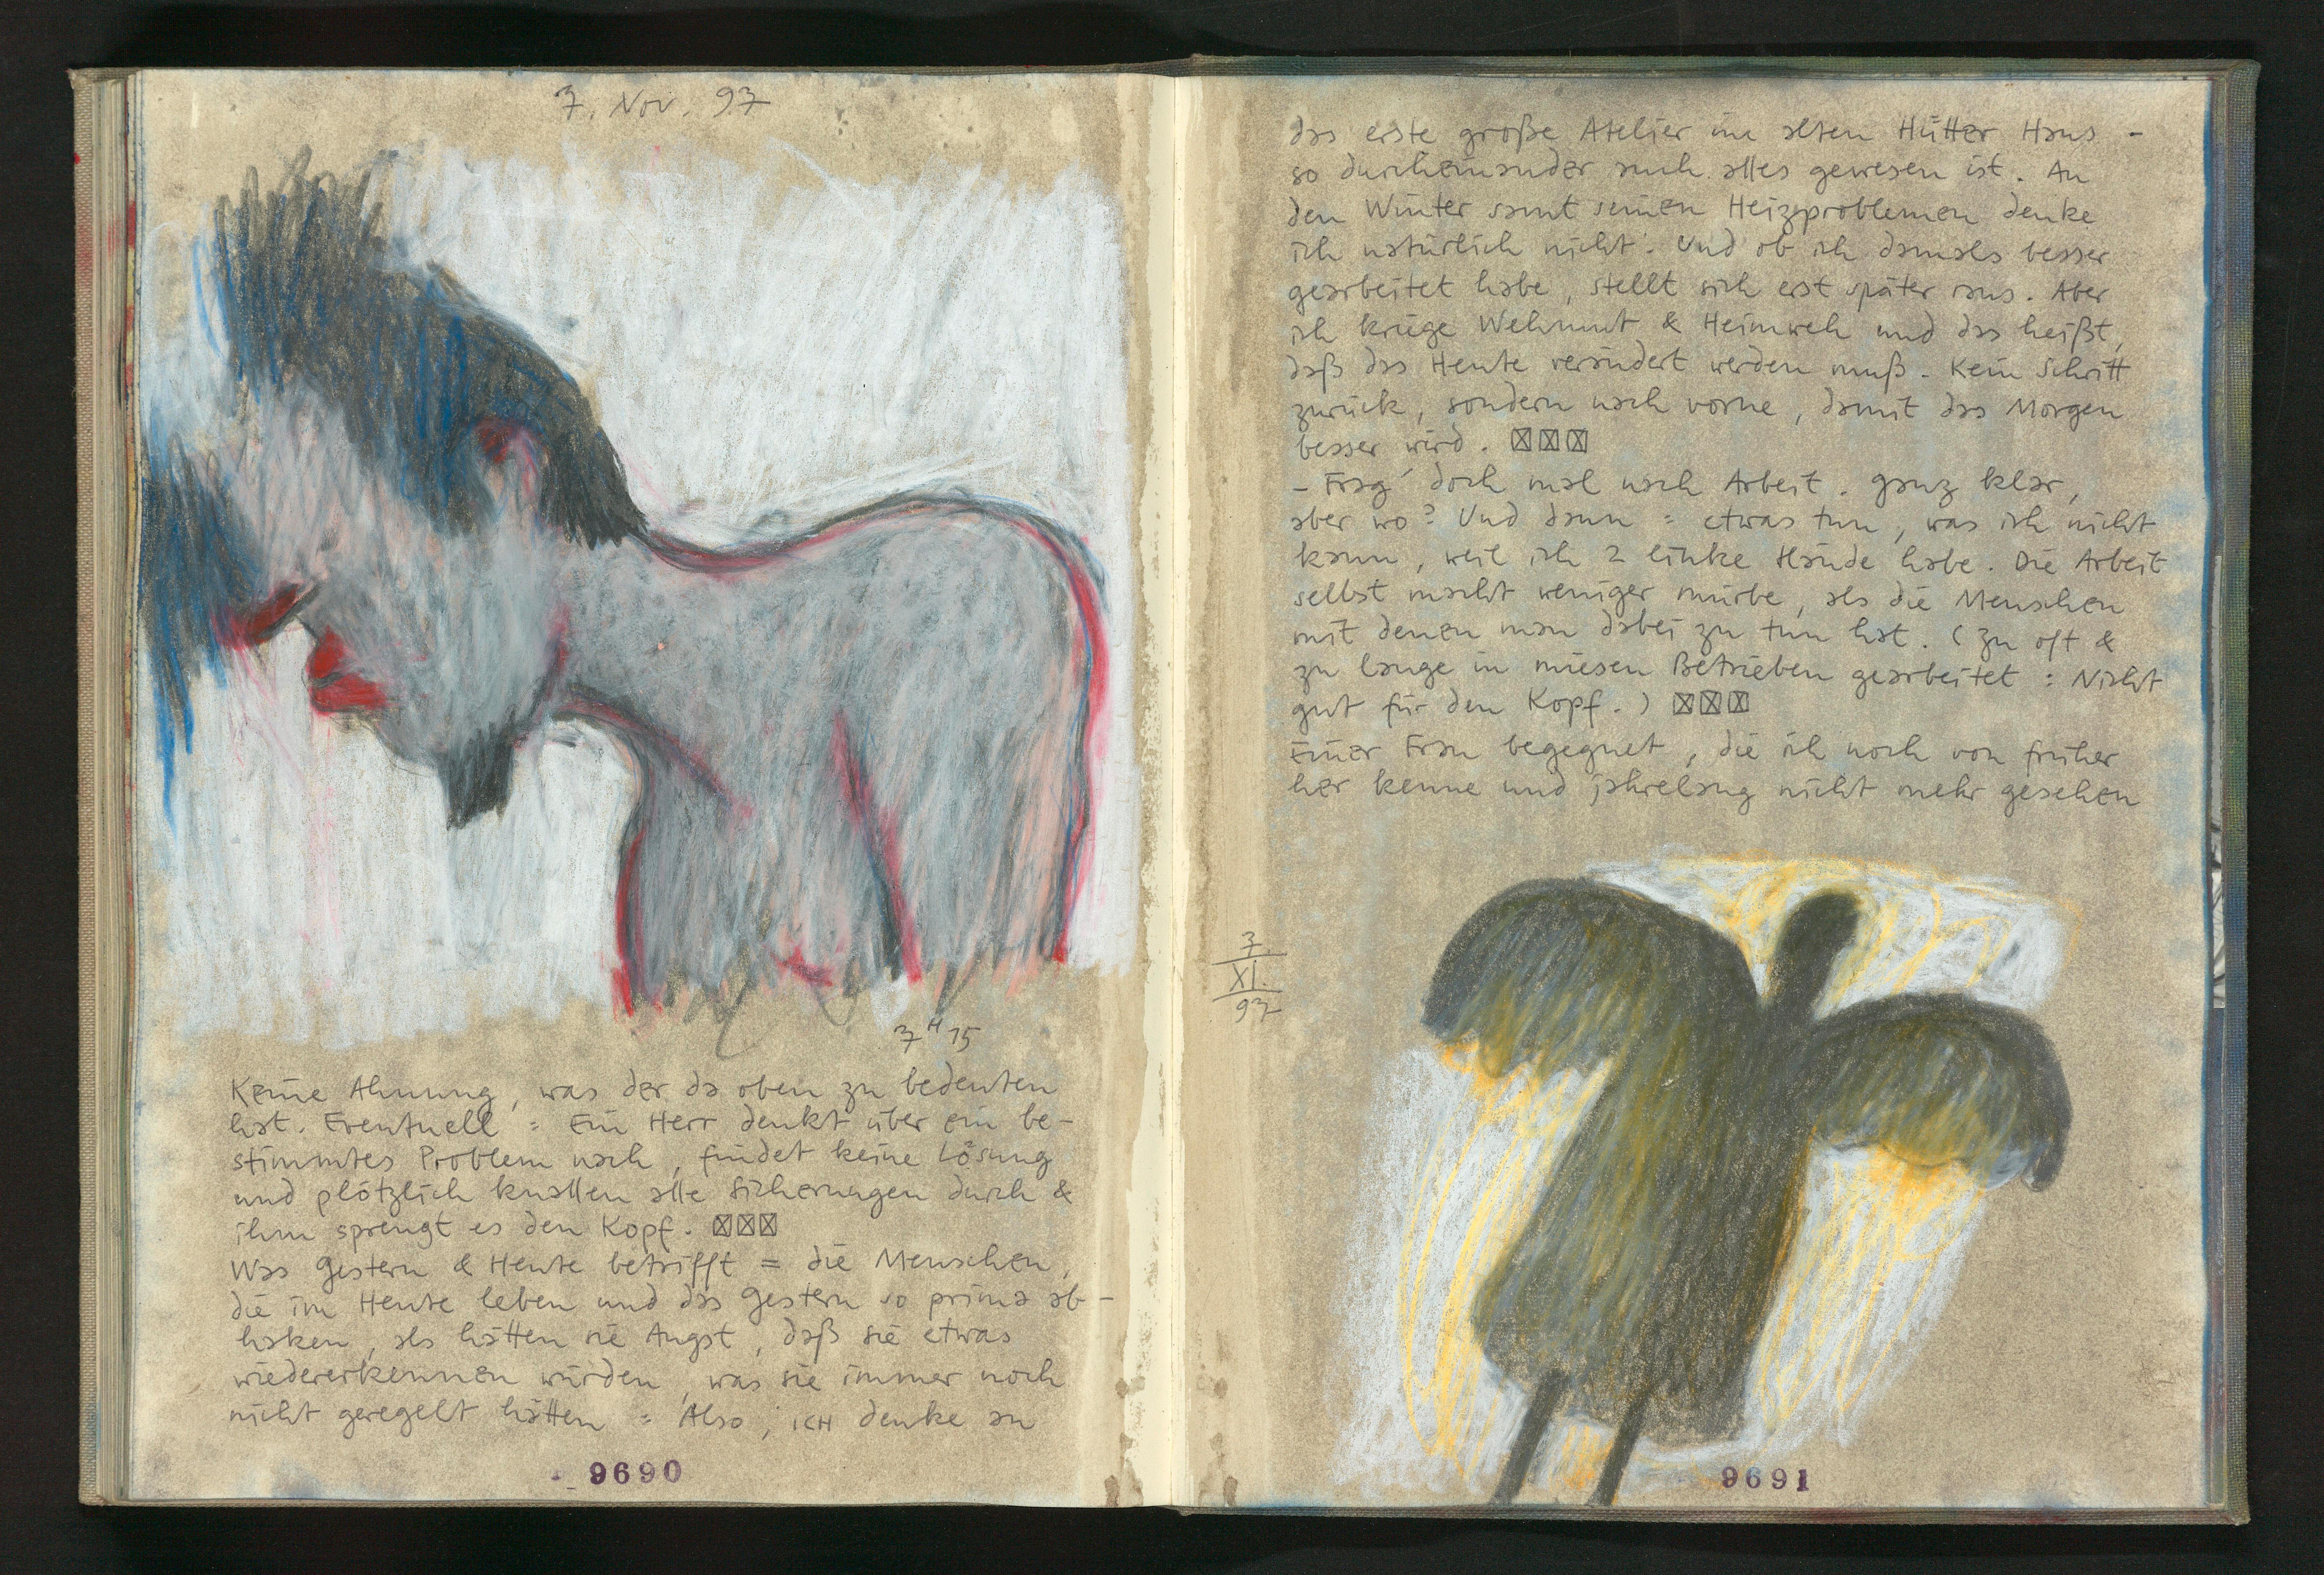 7. Nov. 97
7 H 15
Keine Ahnung, was der da oben zu bedeuten
hat. Eventuell = Ein Herr denkt über ein be-
stimmtes Problem nach, findet keine Lösung
und plötzlich knallen alle Sicherungen durch &
ihm sprengt es den Kopf. ☒☒☒
Was Gestern & Heute betrifft = die Menschen,
die im Heute leben und das Gestern so prima ab-
haken, als hätten sie Angst, daß sie etwas
wiedererkennen würden, was sie immer noch
nicht geregelt hätten = Also, ICH denke an
9690
das erste große Atelier im alten Hütter Haus -
so durcheinander auch alles gewesen ist. An
den Winter samt seinen Heizproblemen denke
ich natürlich nicht. Und ob ich damals besser
gearbeitet habe, stellt sich erst später raus. Aber
ich kriege Wehmut & Heimweh und das heißt,
daß das Heute verändert werden muß. Kein Schritt
zurück, sondern nach vorne, damit das Morgen
besser wird. ☒☒☒
- Frag' doch mal nach Arbeit. Ganz klar,
aber wo? Und dann = etwas tun, was ich nicht
kann, weil ich 2 linke Hände habe. Die Arbeit
selbst macht weniger mürbe, als die Menschen
mit denen man dabei zu tun hat. (Zu oft &
zu lange in miesen Betrieben gearbeitet = Nicht
gut für den Kopf.) ☒☒☒
Einer Frau begegnet, die ich noch von früher
her kenne und jahrelang nicht mehr gesehen
7.
XI.
97
9691